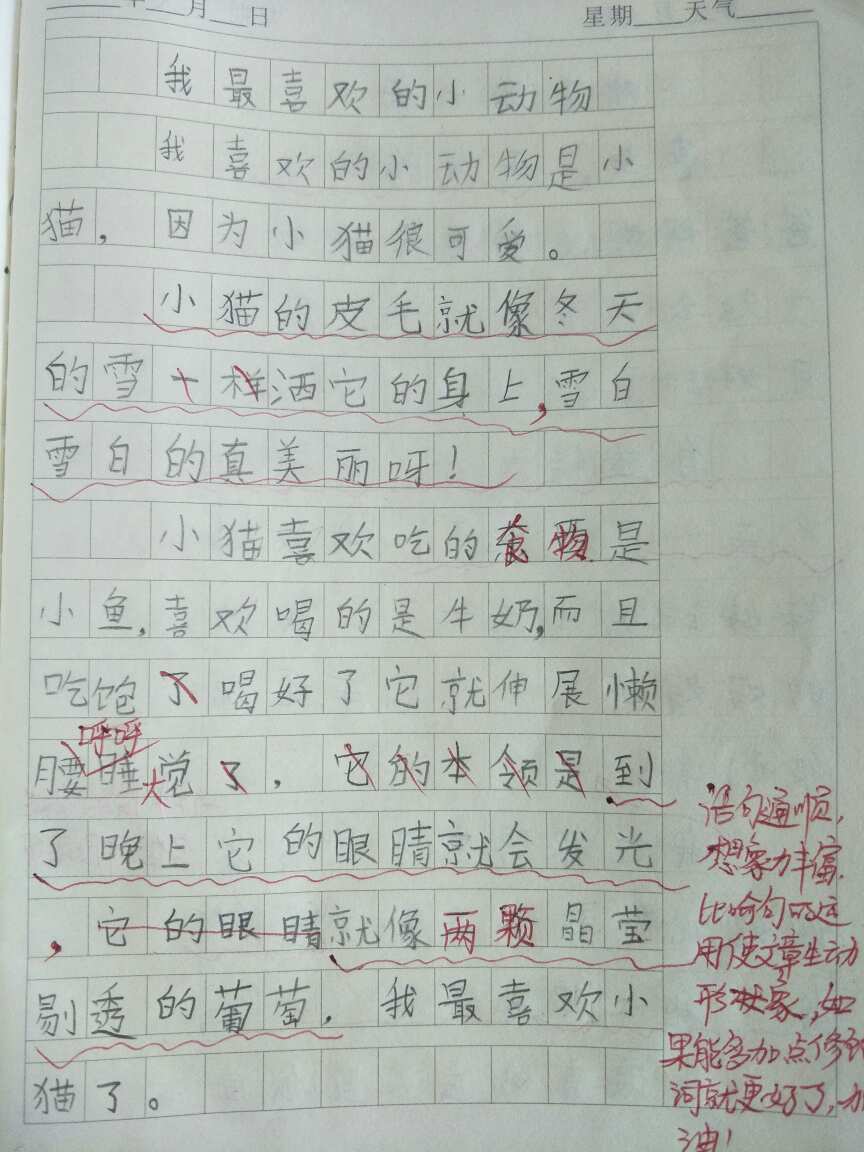 年 月 日 星期 天气
我最喜欢的小动物
我喜欢的小动物是小
猫，因为小猫很可爱。
小猫的皮毛就像冬天
的雪一样洒它的身上，雪白
雪白的真美丽呀！
小猫喜欢吃的是
小鱼，喜欢喝的是牛奶，而且
吃饱了喝好了它就伸展懒
呼呼
腰睡大觉了，它的本领是到
了晚上它的眼睛就会发光
，它的眼睛就像两颗晶莹
剔透的葡萄，我最喜欢小
猫了。
语句通顺，
想象力丰富.
比喻句的运
用使文章生动
形象，如
果能多加点修辞
词就更好了，加
油！